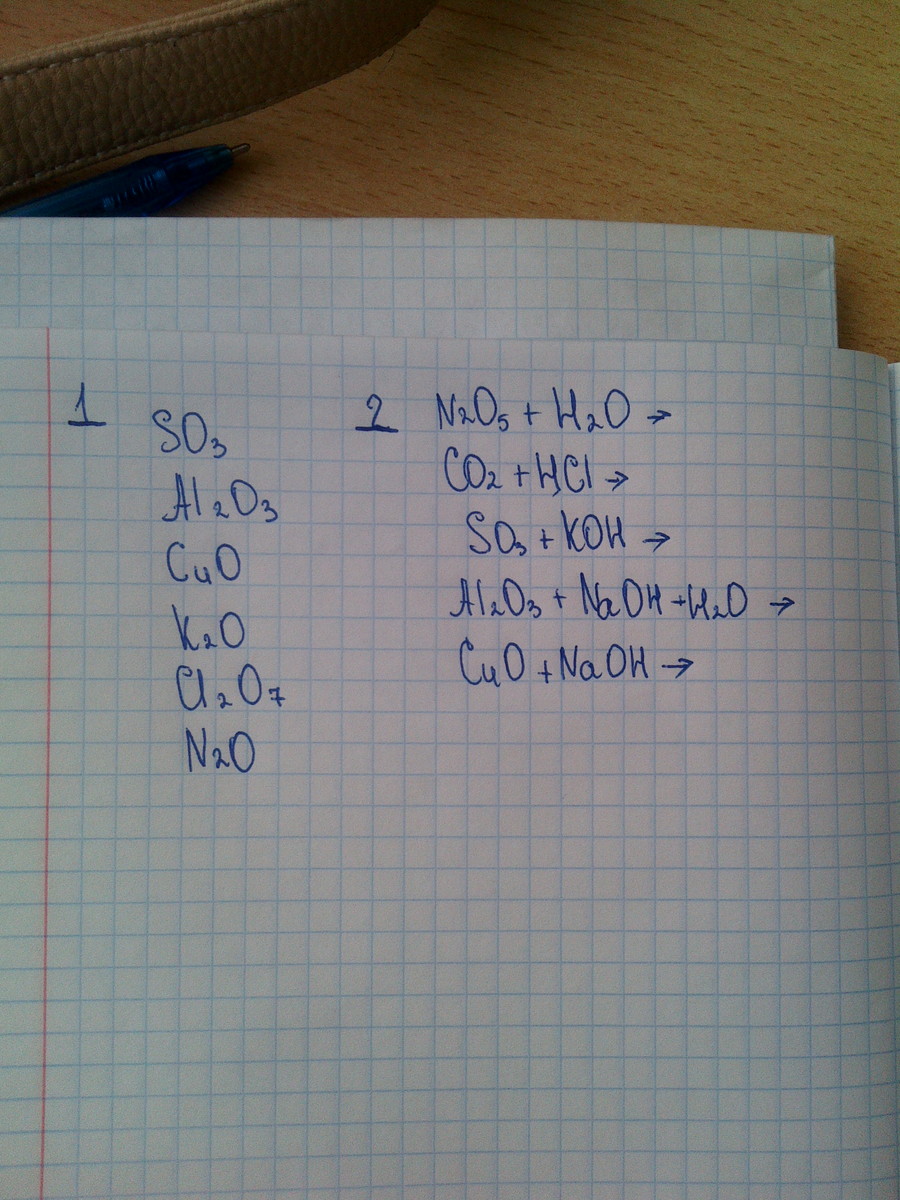 1
SO₃
Al₂O₃
CuO
K₂O
Cl₂O₇
N₂O
2 N₂O₅ + H₂O →
CO₂ + HCl →
SO₃ + KOH →
Al₂O₃ + NaOH + H₂O →
CuO + NaOH →